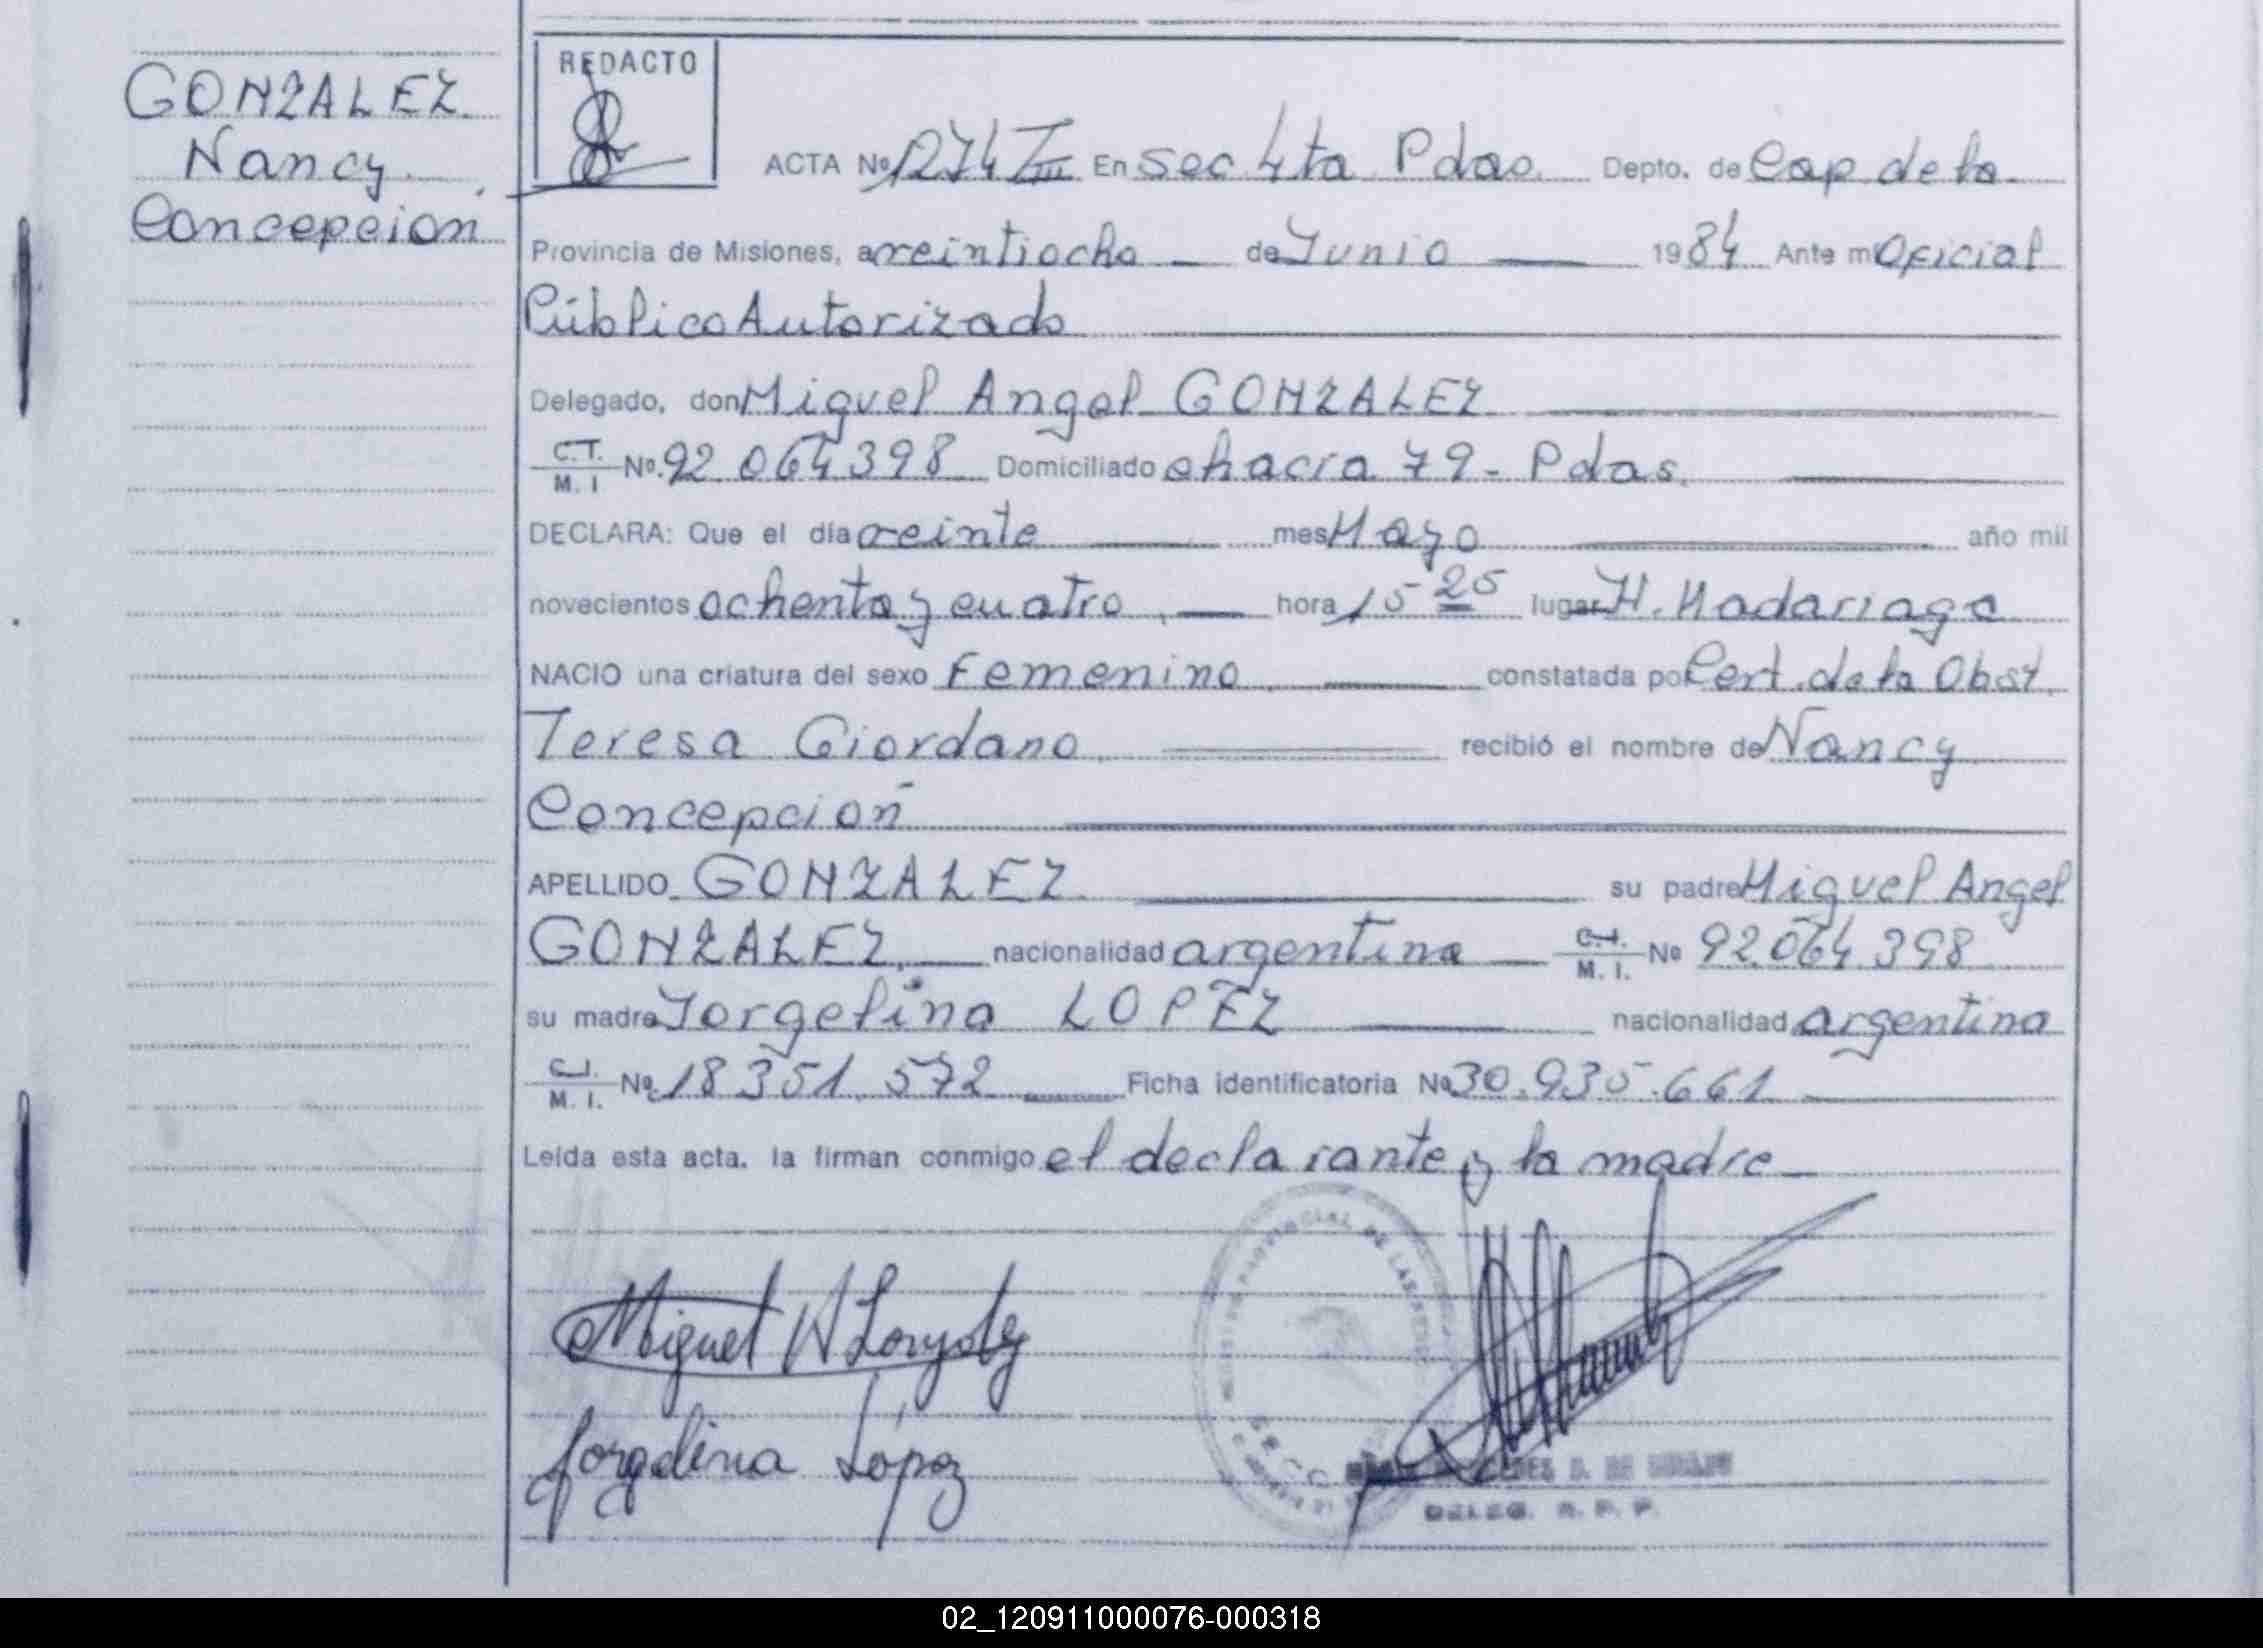 GONZALEZ
Nancy
Concepción
REDACTO
ACTA Nº 1274 T III En sec 4ta Pdas. Depto. de Cap. de la
Provincia de Misiones, a veintiocho de Junio 1984 Ante mí Oficial
Público Autorizado
Delegado, don Miguel Angel GONZALEZ
C.I. M. I Nº. 92 064 398 Domiciliado chacra 79 - Pdas.
DECLARA: Que el día veinte mes Mayo año mil
novecientos ochenta y cuatro, hora 15 25 lugar H. Madariaga
NACIO una criatura del sexo Femenino constatada por Cert. de la Obst.
Teresa Giordano recibió el nombre de Nancy
Concepción
APELLIDO GONZALEZ su padre Miguel Angel
GONZALEZ, nacionalidad argentina C.I. M. I. Nº 92.064.398
su madre Jorgelina LOPEZ nacionalidad argentina
C.I. M. I. Nº. 18 351.572 Ficha identificatoria Nº 30.935.661
Leída esta acta, la firman conmigo el declarante y la madre
PROVINCIAL DE LAS
Miguel A Gonzalez
Jorgelina López
DELEG. R. P. P.
02_120911000076-000318